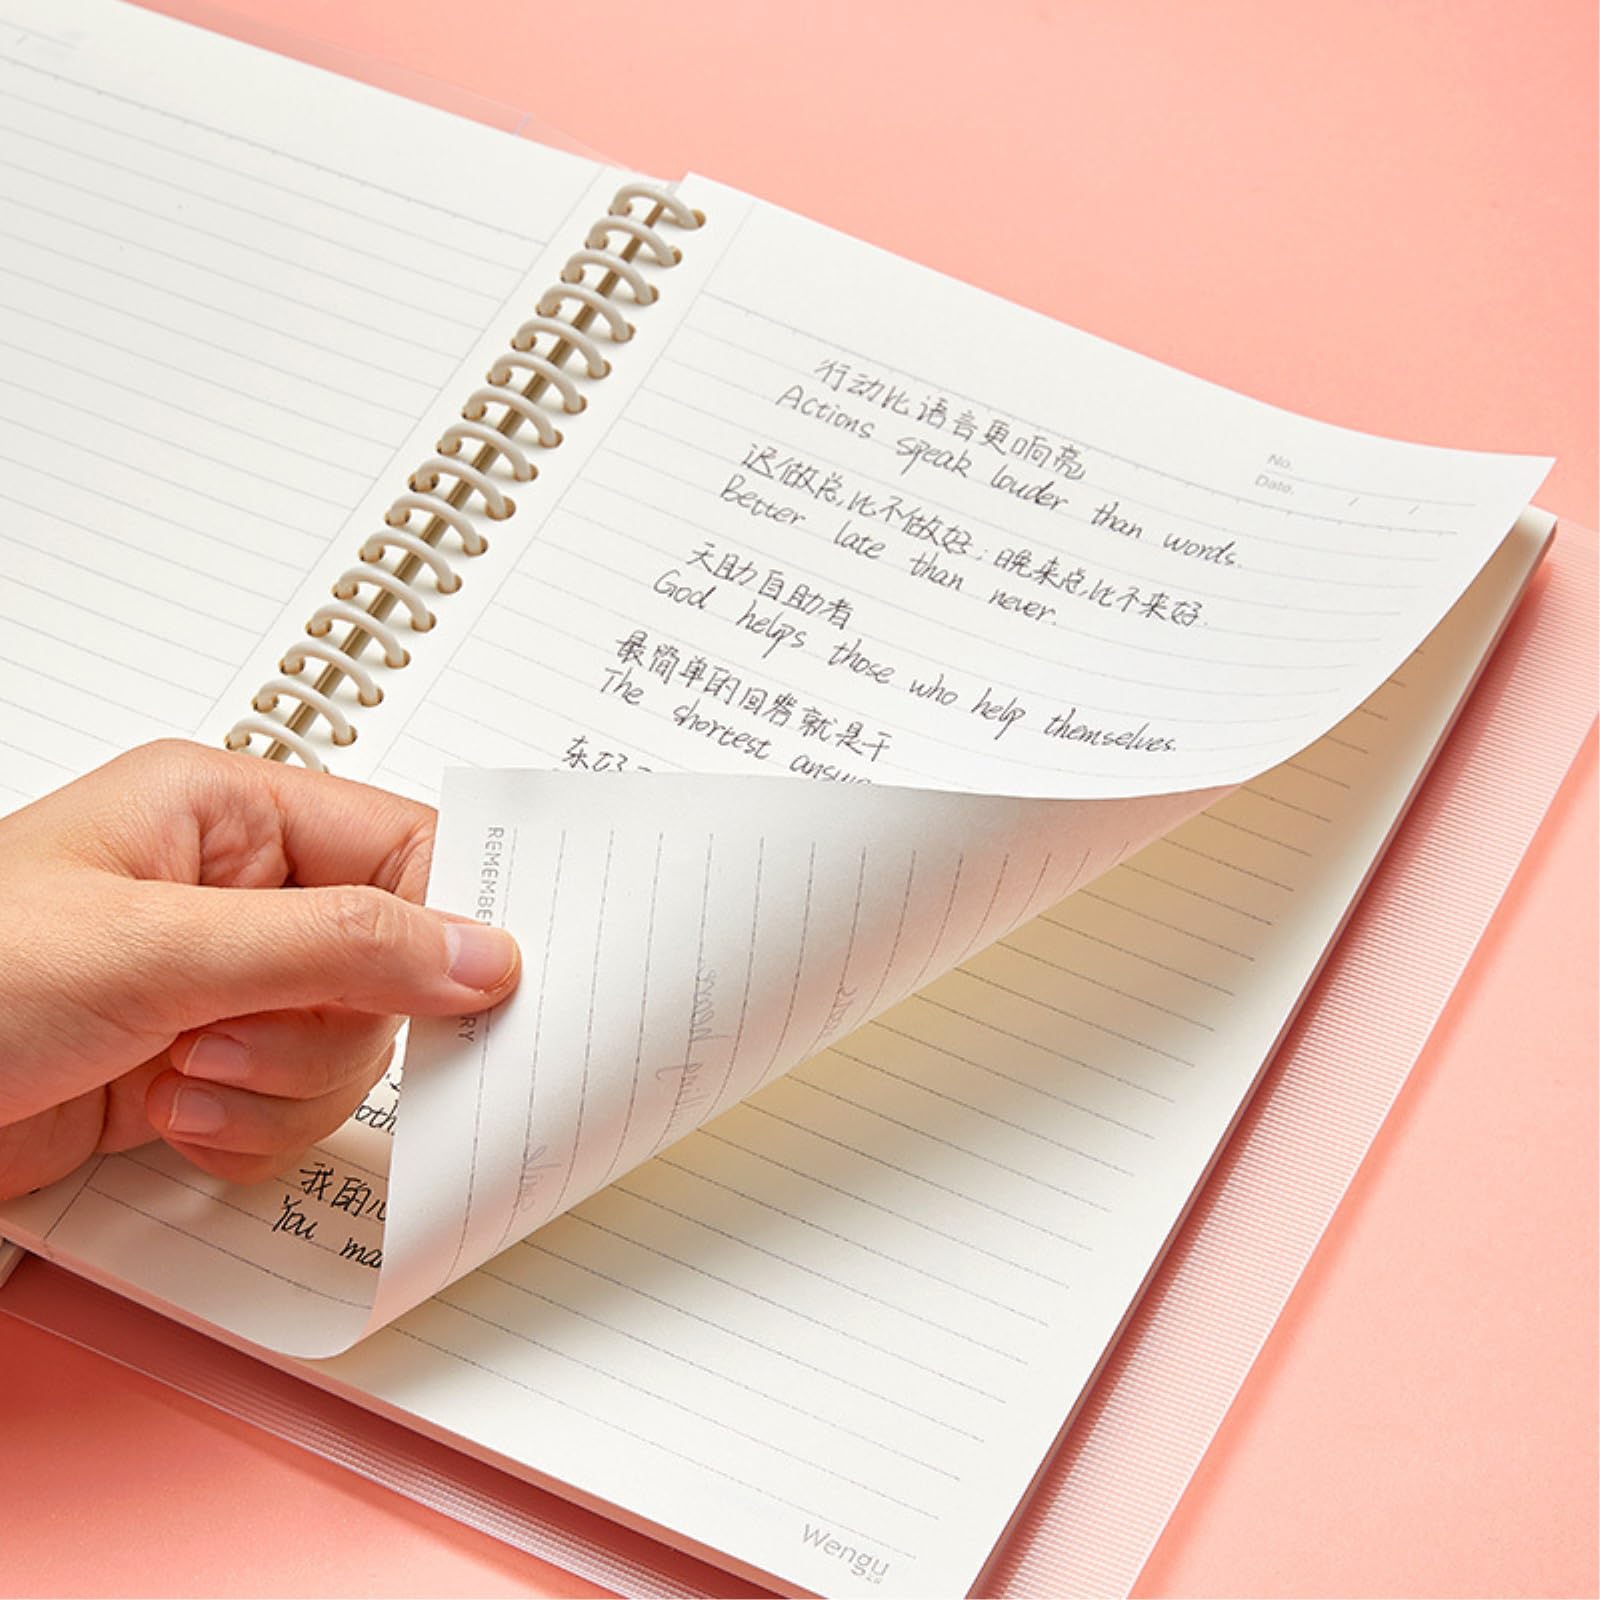 No.
Date. / /
行动比语言更响亮
Actions speak louder than words.
迟做总比不做好;晚来总比不来好.
Better late than never.
天助自助者
God helps those who help themselves.
最简单的回答就是干
The shortest
我的
You
Wengu